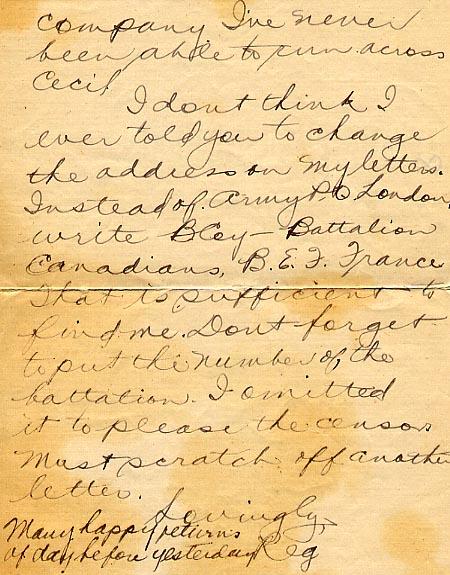 company I've never
been able to run across
Cecil
I dont think I
ever told you to change
the address on my letters.
Instead of Army P.O. London
write B Coy - Battalion
Canadians, B.E.F. France
That is sufficient to
find me. Dont forget
to put the number of the
battalion. I omitted
it to please the censor
Must scratch off another
letter.
Lovingly,
Reg
Many happy returns
of day before yesterday